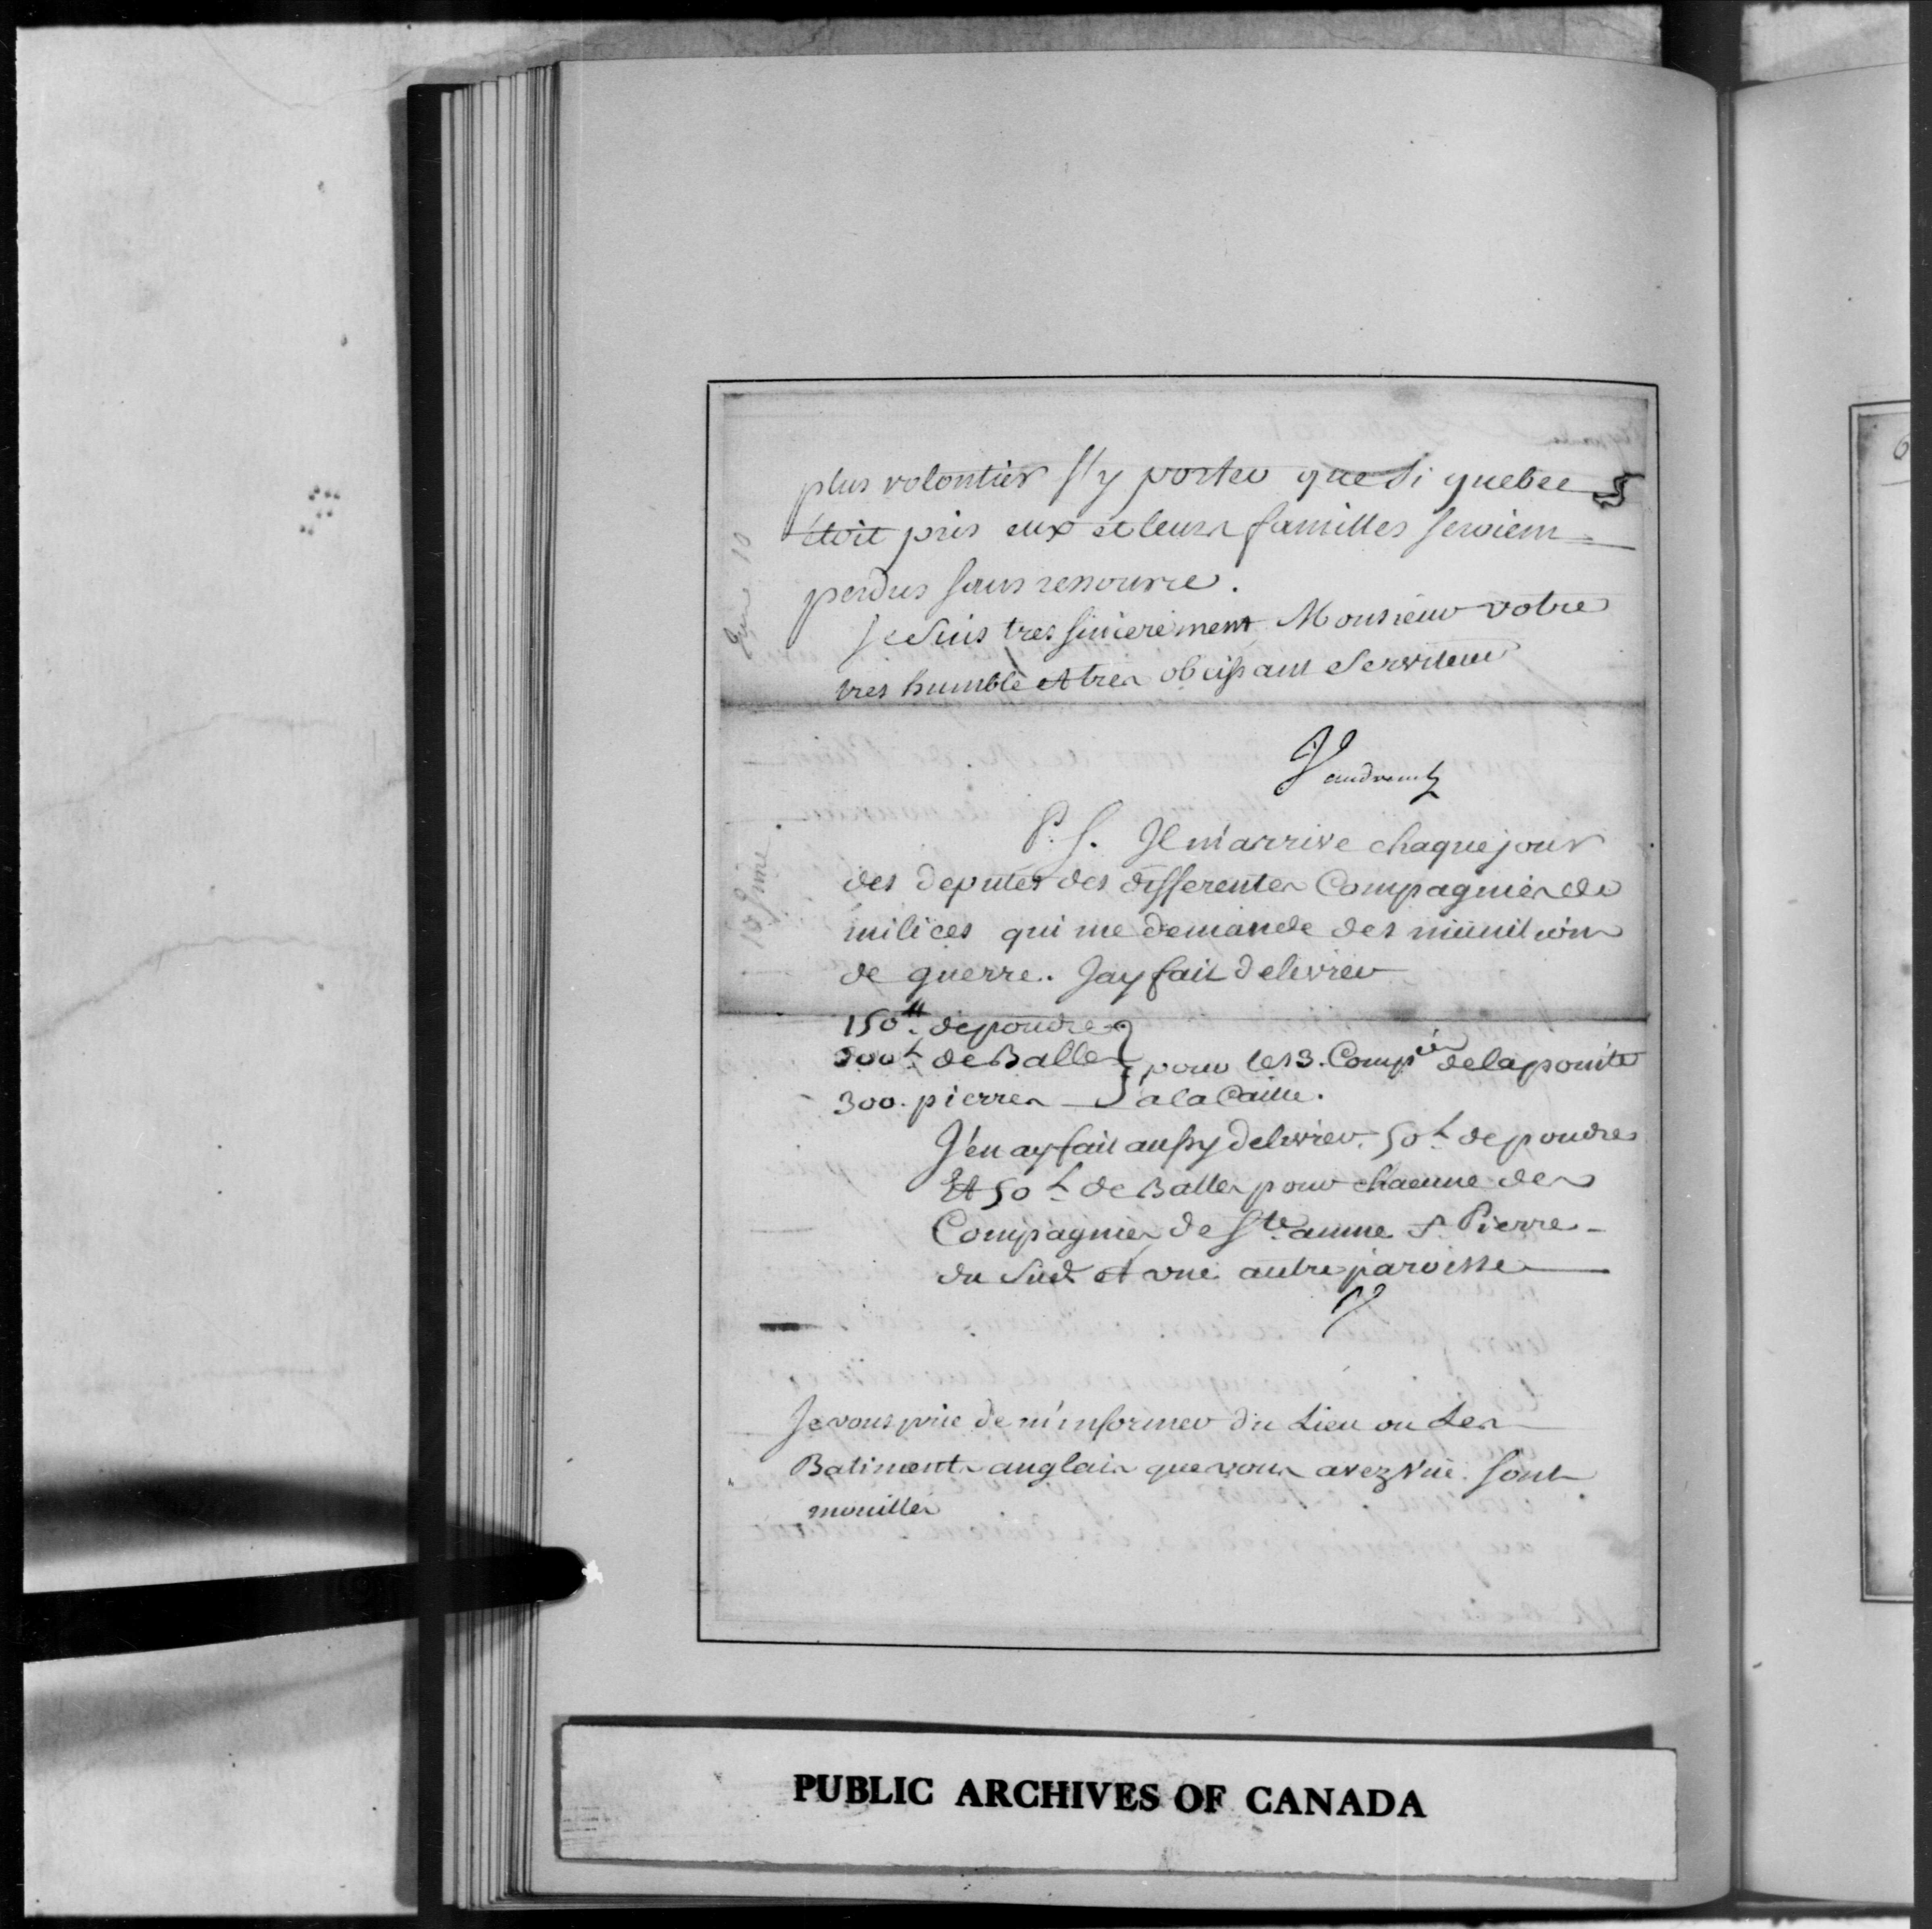 plus volontier s'y porter que si quebec
5
étoit pris eux et leurs familles seroient
perdus sans ressource.
Je suis tres sincerement Monsieur votre
tres humble et tres obeissant Serviteur
Vaudreuil
P.S. Il m'arrive chaque jour
des deputés des differentes Compagnies de
milices qui me demande des munitions
de guerre. Jay fait delivrer
150ᵗᵗ. de poudre
300ᵗ de Balles } pour les 3. Compⁱᵉˢ de la pointe
300. pierres } a la Caille.
J'en ay fait aussy delivrer 50ᵗ de poudre
Et 50ᵗ de Balles pour chacune des
Compagnies de Sᵗᵉ anne Sᵗ Pierre
du Sud et une autre paroisse
V
Je vous prie de m'informer du Lieu ou Les
Batiments anglais que vous avez Vüe sont
mouillés
June 10
10 June.
6
PUBLIC ARCHIVES OF CANADA